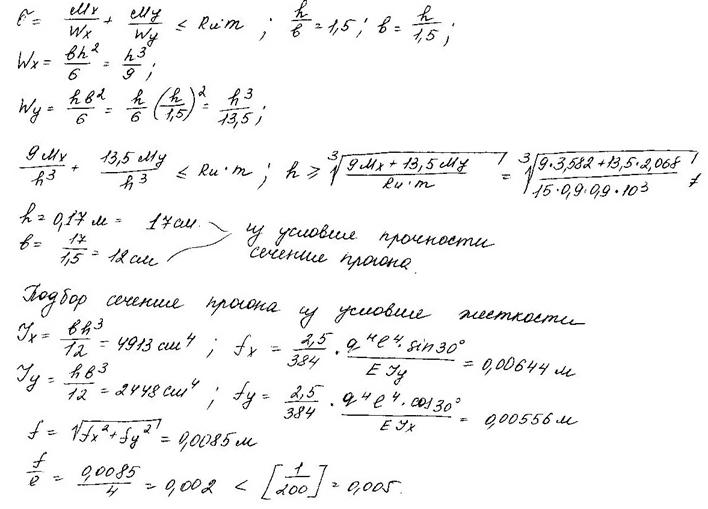 σ = Mx/Wx + My/Wy ≤ Rи·m ; h/в = 1,5 ; в = h/1,5 ;
Wx = вh²/6 = h³/9 ;
Wy = hв²/6 = h/6 (h/1,5)² = h³/13,5 ;
9Mx/h³ + 13,5My/h³ ≤ Rи·m ; h ≥ ³√((9Mx + 13,5My)/(Rи·m)) = ³√((9·3,582+13,5·2,068)/(15·0,9·0,9·10³))
h = 0,17 м = 17 см.
в = 17/1,5 = 12 см
из условие прочности
сечение прогона.
Подбор сечение прогона из условие жесткости
Jx = вh³/12 = 4913 см⁴ ; fx = 2,5/384 · q⁴ℓ⁴·sin30°/EJy = 0,00644 м
Jy = hв³/12 = 2448 см⁴ ; fy = 2,5/384 · q⁴ℓ⁴·cos30°/EJx = 0,00556 м
f = √(fx²+fy²) = 0,0085 м
f/ℓ = 0,0085/4 = 0,002 < [1/200] = 0,005.